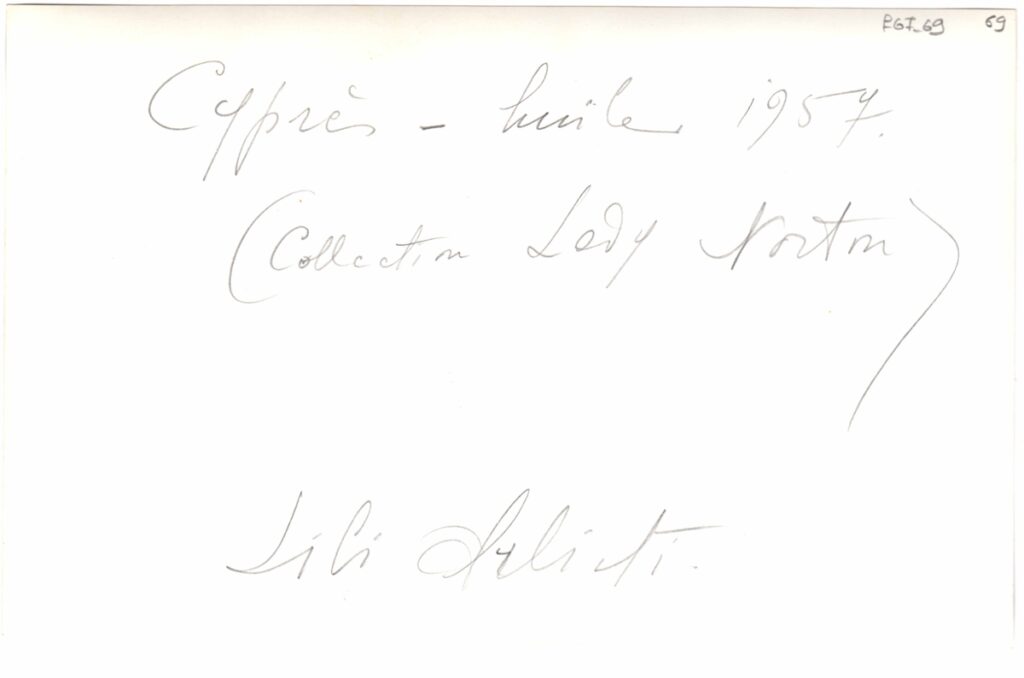 RGI_69 69
Cyprès - huile 1957.
(Collection Lady Norton)
Lili Arlicti.